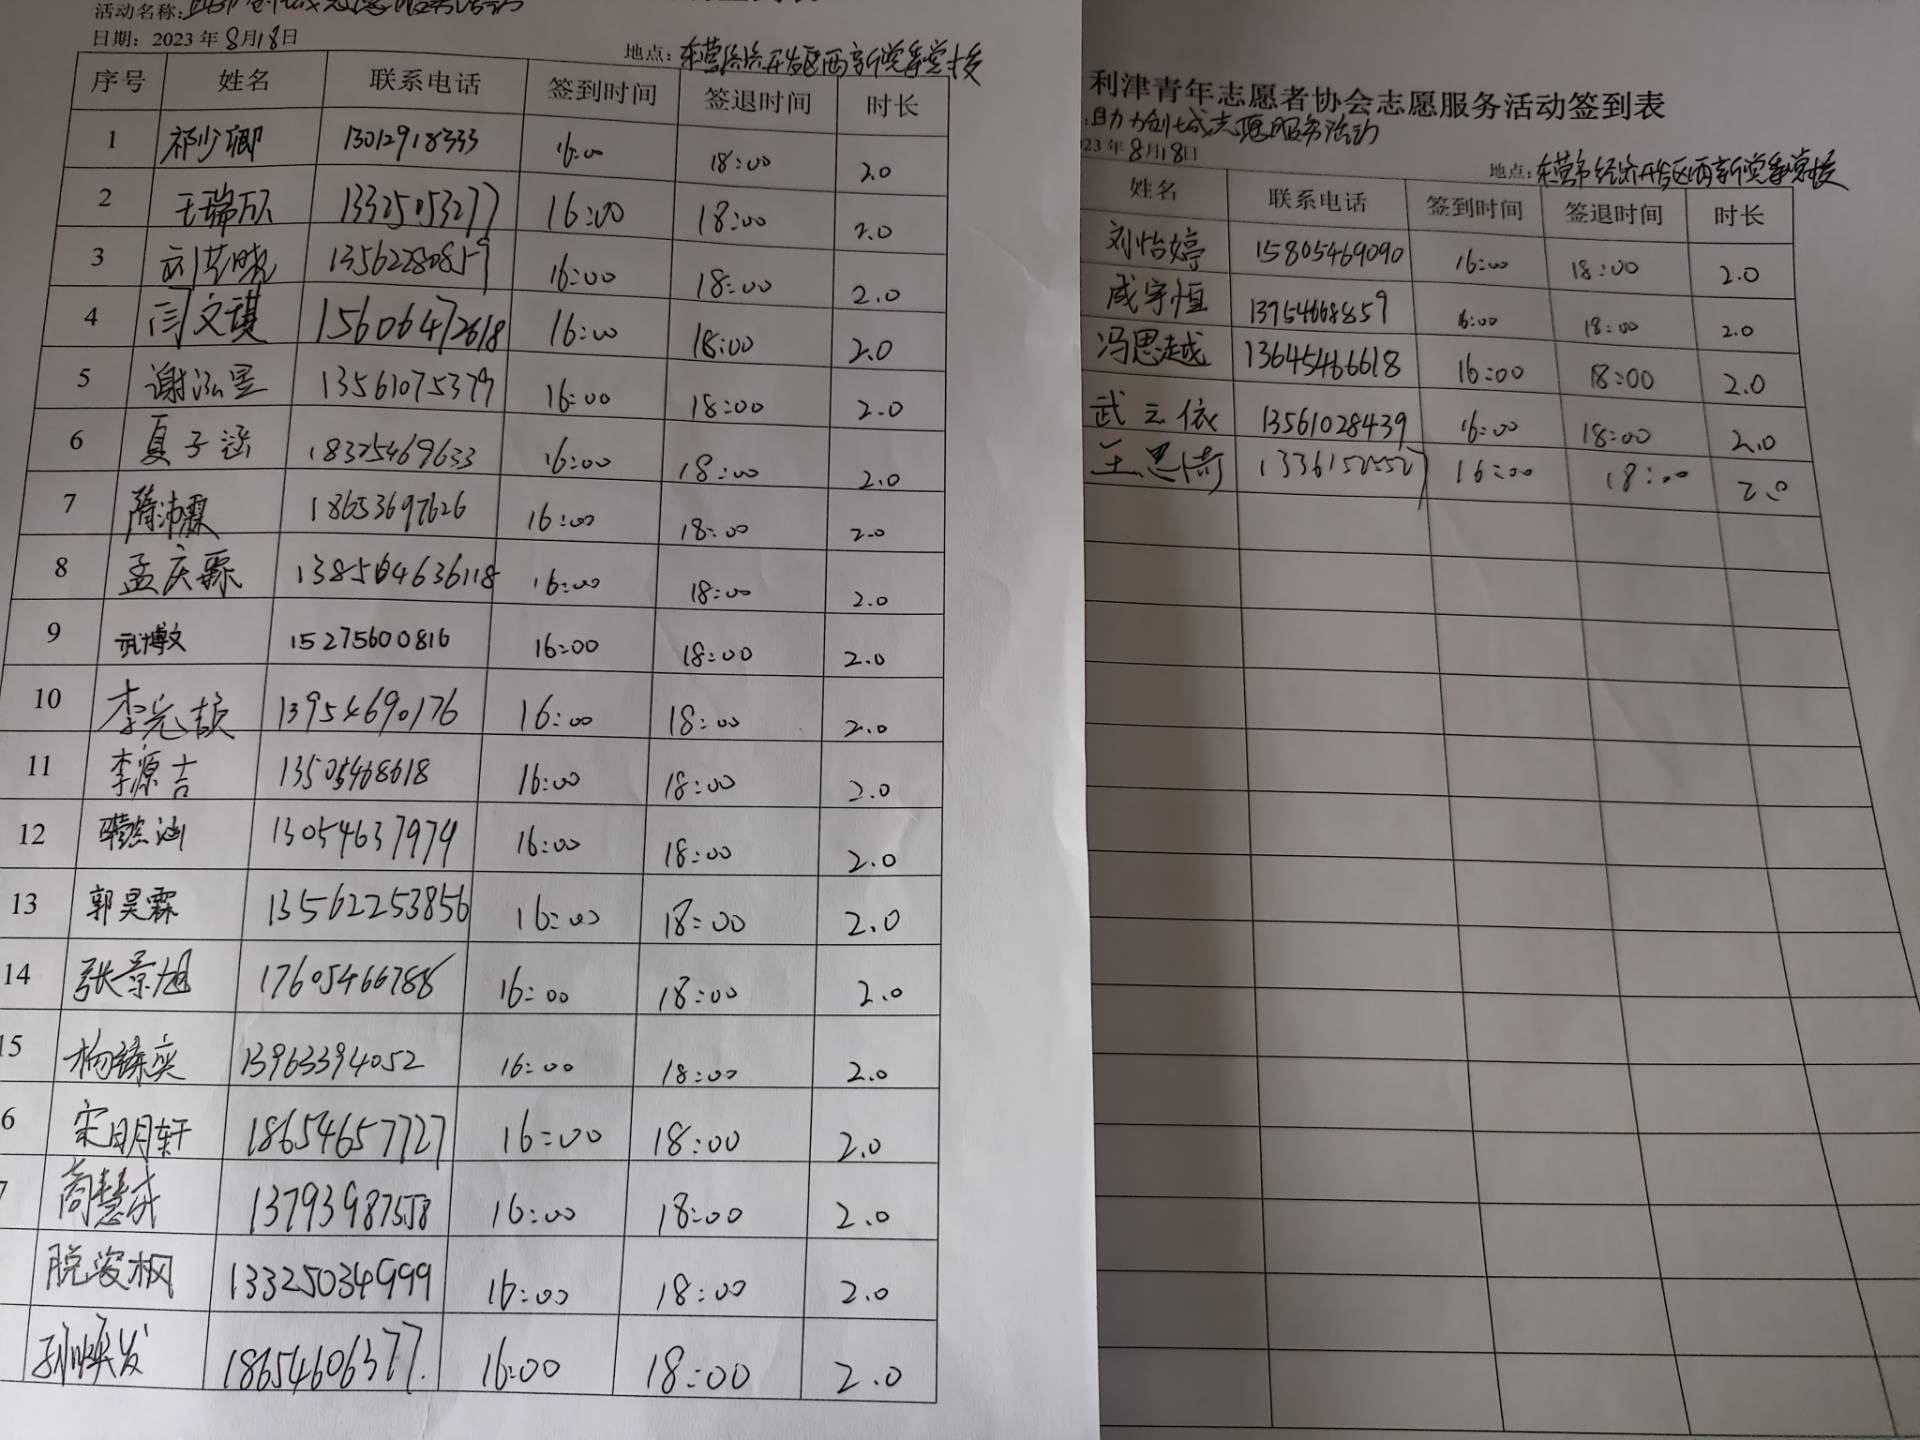 活动名称:
日期: 2023 年 8月18日
地点:
序号 姓名 联系电话 签到时间 签退时间 时长
1 祁少卿 13012918333 16:00 18:00 2.0
2 王瑞欣 13325053277 16:00 18:00 2.0
3 刘艺晓 13562280859 16:00 18:00 2.0
4 闫文琪 15606472618 16:00 18:00 2.0
5 谢泓昱 13561075379 16:00 18:00 2.0
6 夏子涵 18325469633 16:00 18:00 2.0
7 隋沛霖 18653697626 16:00 18:00 2.0
8 孟庆霖 16:00 18:00 2.0
9 武博文 15275600816 16:00 18:00 2.0
10 13954690176 16:00 18:00 2.0
11 李源吉 13505468618 16:00 18:00 2.0
12 13054637979 16:00 18:00 2.0
13 郭昊霖 13562253856 16:00 18:00 2.0
14 张景旭 17605466788 16:00 18:00 2.0
15 13963394052 16:00 18:00 2.0
6 宋明轩 18654657727 16:00 18:00 2.0
7 商慧成 13793987558 16:00 18:00 2.0
脱姿枫 13325034999 16:00 18:00 2.0
孙焕发 18654606377. 16:00 18:00 2.0
利津青年志愿者协会志愿服务活动签到表
: 助力创城志愿服务活动
23 年 8月18日
地点: 东营市经济开发区西新党群党校
姓名 联系电话 签到时间 签退时间 时长
刘怡婷 15805469090 16:00 18:00 2.0
咸宇恒 13754668859 16:00 18:00 2.0
冯思越 13645466618 16:00 18:00 2.0
武云依 13561028439 16:00 18:00 2.0
王思琦 16:00 18:00 2.0